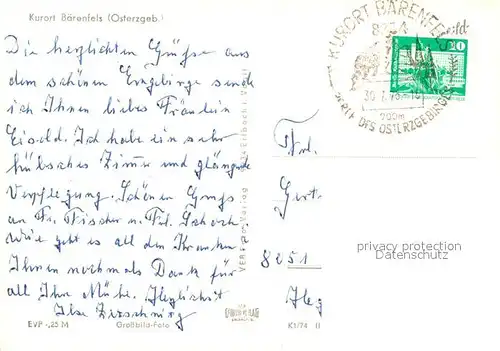 Kurort Bärenfels (Osterzgeb.)
Die herzlichsten Grüße aus
dem schönen Erzgebirge sende
ich Ihnen liebes Fräulein
Eisold. Ich habe ein sehr
hübsches Zimmer und glänzende
Verpflegung. Schönen Gruß
an Fr. Fischer u. Frl. Schoch
wie geht es all den Kranken
Ihnen nochmals Dank für
all Ihre Mühe. Herzlichst
Ilse
EVP -,25 M
Großbild-Foto
K1/74 II
KURORT BÄRENFELS
700m
DES OSTERZGEBIRGES
20
Frl.
Gert.
8251
privacy protection
Datenschutz